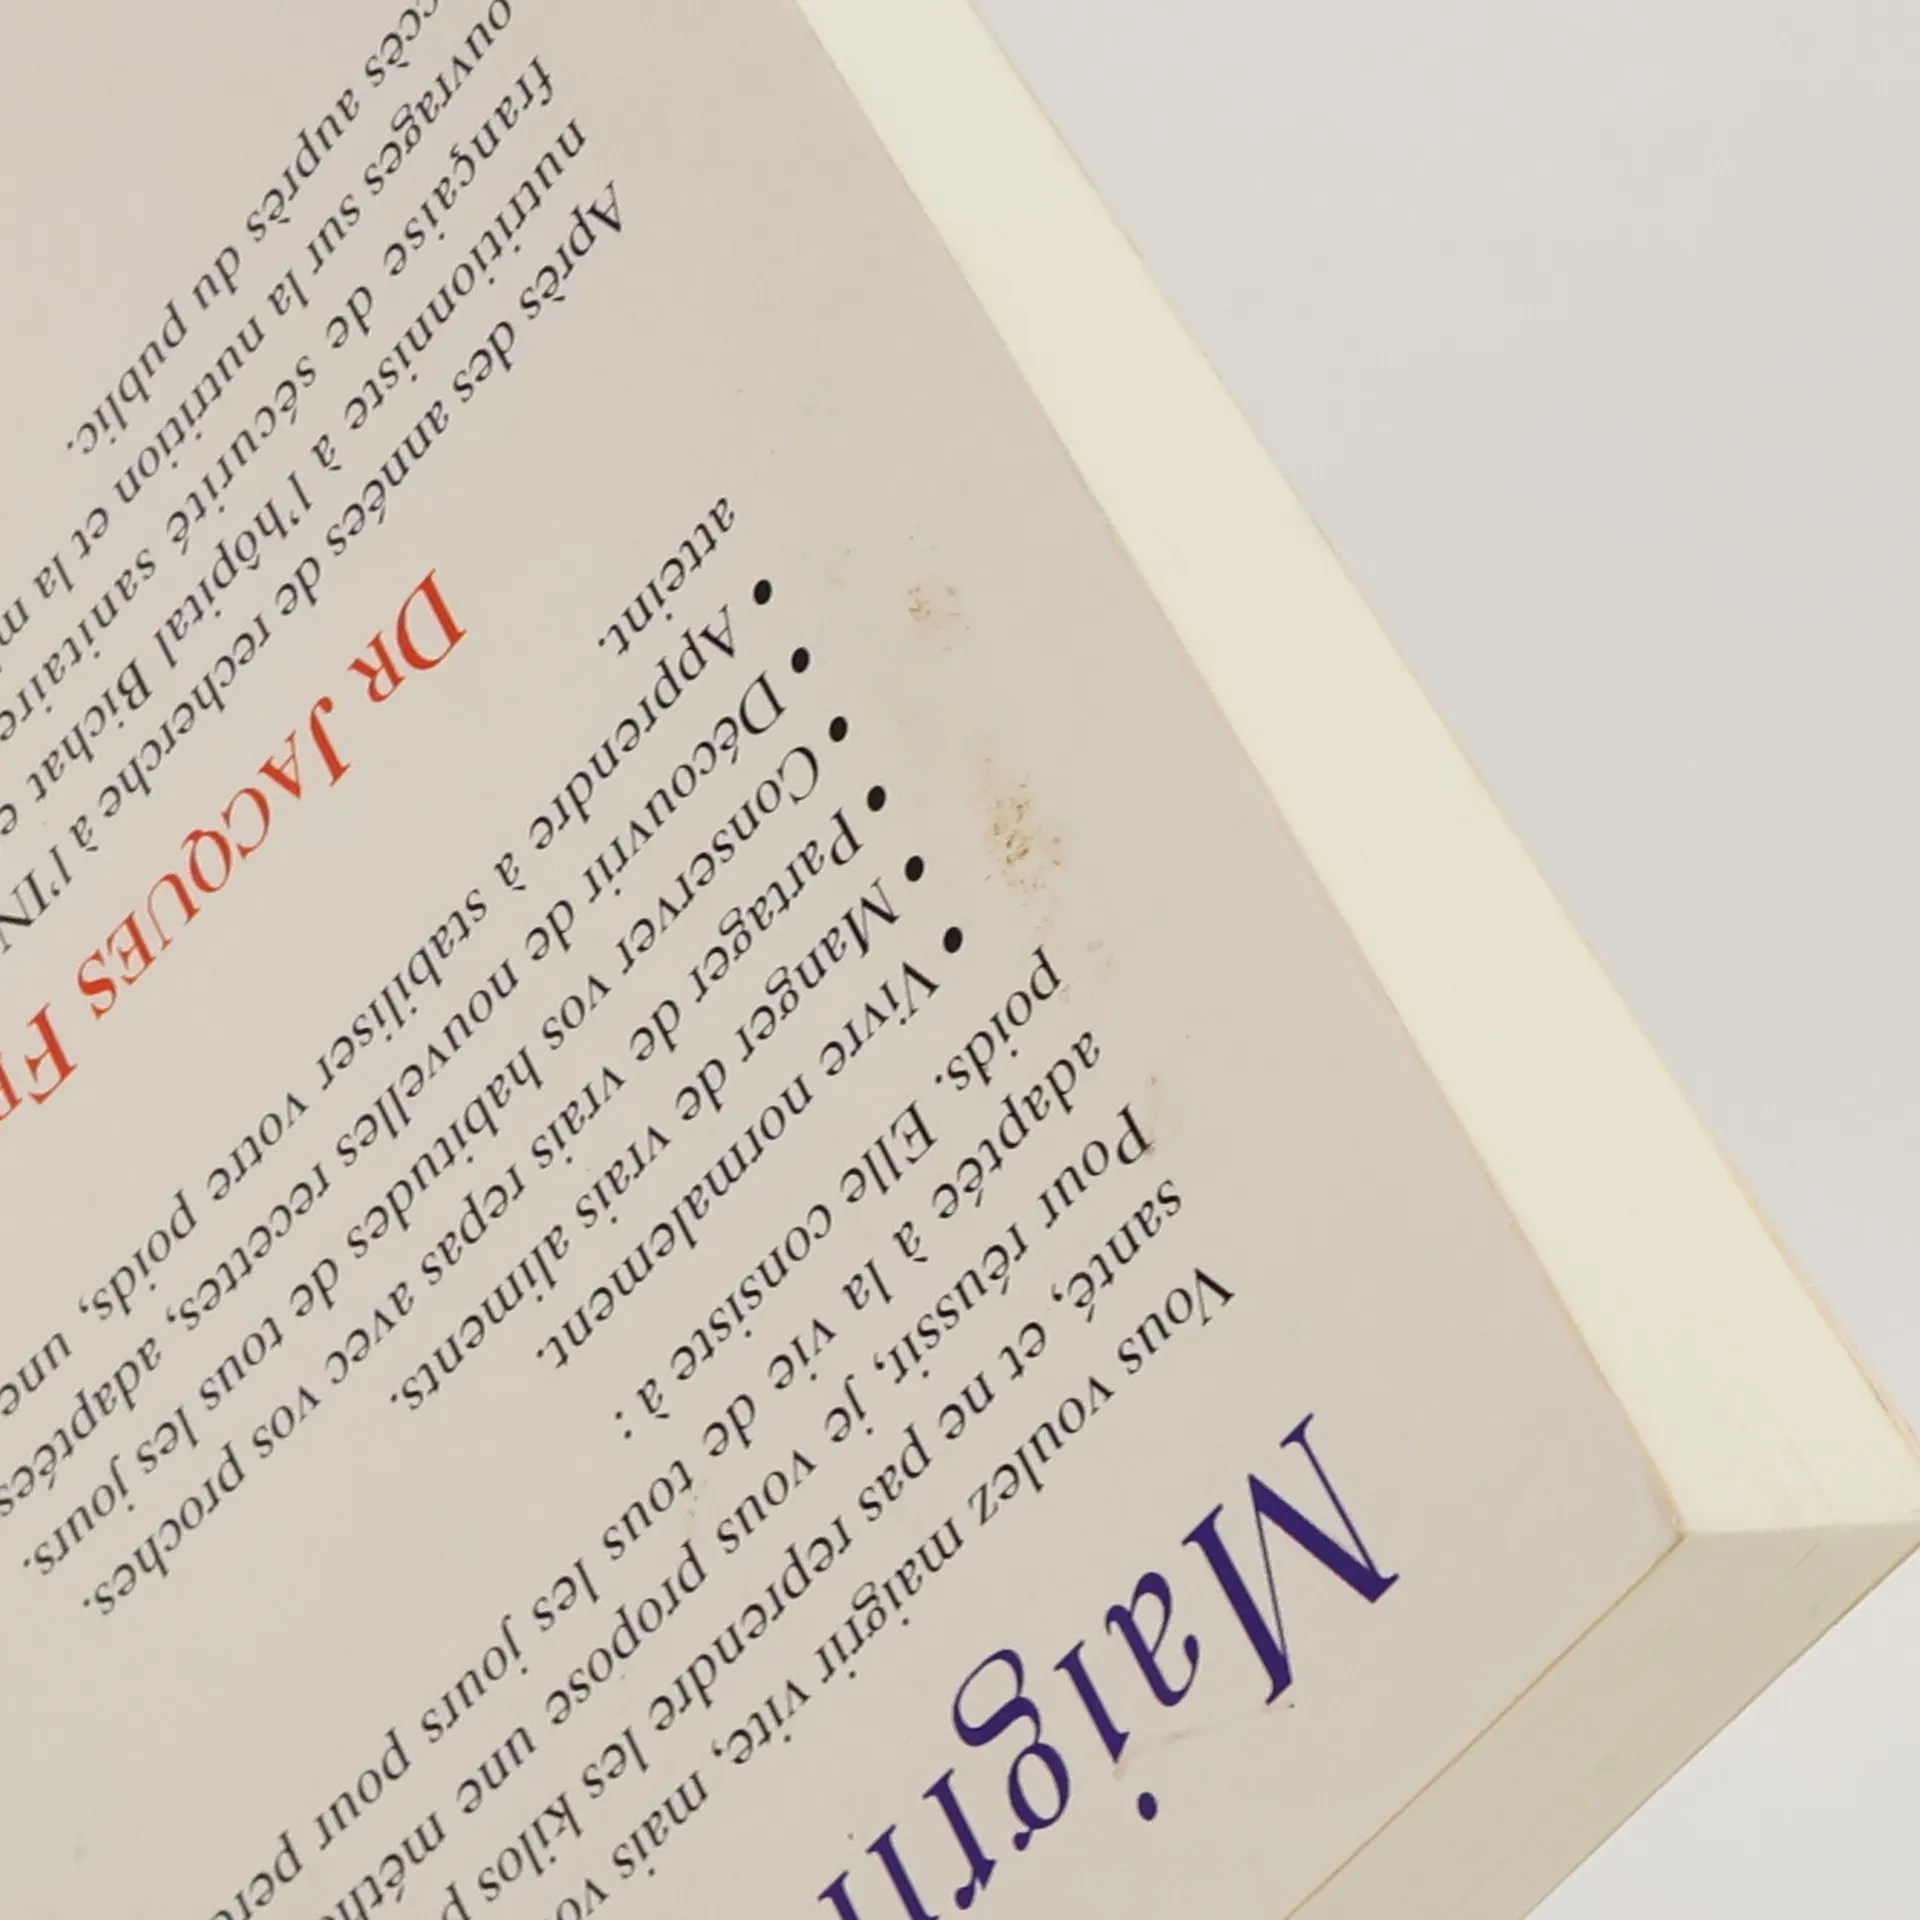 Maigrir
Vous voulez maigrir vite, mais
santé, et ne pas reprendre les kilos
Pour réussir, je vous propose une
adaptée à la vie de tous les jours pour
poids. Elle consiste à :
• Vivre normalement.
• Manger de vrais aliments.
• Partager de vrais repas avec vos proches.
• Conserver vos habitudes de tous les jours.
• Découvrir de nouvelles recettes, adaptées
• Apprendre à stabiliser votre poids, une
atteint.
DR JACQUES
Après des années de recherche à
nutritionniste à l'hôpital Bichat
française de sécurité sanitaire
ouvrages sur la nutrition et la
auprès du public.